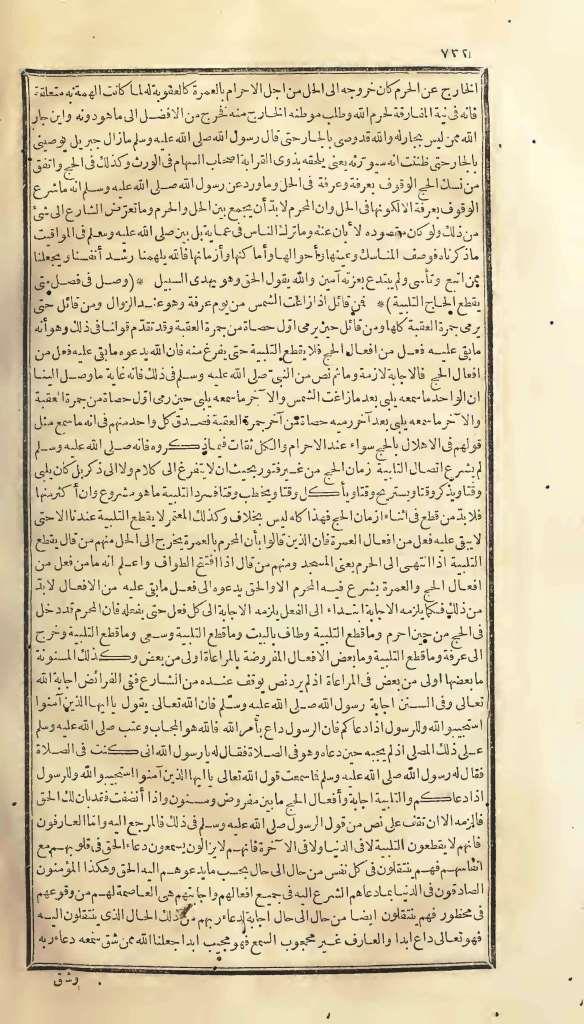 ٧٣٢
الخارج عن الحرم كان خروجه الى الحل من اجل الاحرام بالعمرة كالعقوبة له لما كانت الهمة به متعلقة
فانه فى نية المفارقة لحرم الله وطلب موطنه الخارج منه فخرج من الافضل الى ما هو دونه واين جار
الله ممن ليس بجار له والله قد وصى بالجار حتى قال رسول الله صلى الله عليه وسلم ما زال جبريل يوصينى
بالجار حتى ظننت انه سيورثه يعنى يلحقه بذوى القرابة اصحاب السهام فى الورث وكذلك فى الحج واتفق
من نسك الحج الوقوف بعرفة وعرفة فى الحل وما ورد عن رسول الله صلى الله عليه وسلم انه ما شرع
الوقوف بعرفة الا لكونها فى الحل وان المحرم لا بد أن يجمع بين الحل والحرم وما تعرض الشارع الى شئ
من ذلك ولو كان مقصوده لأبان عنه وما ترك الناس فى عماية بل بين صلى الله عليه وسلم فى المواقيت
ما ذكرناه فوصف المناسك وعينها وأحوالها وأماكنها وأزمانها فالله يلهمنا رشد أنفسنا ويجعلنا
ممن اتبع وتأسى ولم يبتدع بعزته آمين والله يقول الحق وهو يهدى السبيل * (وصل فى فصل متى
يقطع الحاج التلبية) * فمن قائل اذا زاغت الشمس من يوم عرفة وهو عند الزوال ومن قائل حتى
يرمى جمرة العقبة كلها ومن قائل حين يرمى اول حصاة من جمرة العقبة وقد تقدم قولنا فى ذلك وهو أنه
ما بقى عليه فعل من افعال الحج فلا يقطع التلبية حتى يفرغ منه فان الله يدعوه ما بقى عليه فعل من
افعال الحج فالاجابة لازمة وما ثم نص من النبى صلى الله عليه وسلم فى ذلك فانه غاية ما وصل الينا
ان الواحد ما سمعه يلبى بعد ما زاغت الشمس والآخر ما سمعه يلبى حين رمى اول حصاة من جمرة العقبة
والآخر ما سمعه يلبى بعد آخر رميه حصاة من آخر جمرة العقبة فصدق كل واحد منهم فى انه ما سمع مثل
قولهم فى الاهلال بالحج سواء عند الاحرام والكل ثقات فيما ذكروه فانه صلى الله عليه وسلم
لم يشرع اتصال التلبية زمان الحج من غير فتور بحيث ان لا يتفرغ الى كلام ولا الى ذكر بل كان يلبى
وقتا ويذكر وقتا ويستريح وقتا ويأكل وقتا ويخطب وقتا فسرد التلبية ما هو مشروع وان أكثر منها
فلا بد من قطع فى اثناء ازمان الحج فهذا كله ليس بخلاف وكذلك المعتمر لا يقطع التلبية عندنا الا حتى
لا يبقى عليه فعل من افعال العمرة فان الذين قالوا بأن المحرم بالعمرة يخرج الى الحل منهم من قال يقطع
التلبية اذا انتهى الى الحرم يعنى المسجد ومنهم من قال اذا افتتح الطواف واعلم انه ما من فعل من
افعال الحج والعمرة يشرع فيه المحرم الا والحق يدعوه الى فعل ما بقى عليه من الافعال لا بد
من ذلك فكما يلزمه الاجابة ابتداء الى الفعل يلزمه الاجابة الى كل فعل حتى يفعله فان المحرم قد دخل
فى الحج من حين احرم وما قطع التلبية وطاف بالبيت وما قطع التلبية وسعى وما قطع التلبية وخرج
الى عرفة وما قطع التلبية وما بعض الافعال المفروضة بالمراعاة اولى من بعض وكذلك المسنونة
ما بعضها اولى من بعض فى المراعاة اذ لم يرد نص يوقف عنده من الشارع ففى الفرائض اجابة الله
تعالى وفى السنن اجابة رسول الله صلى الله عليه وسلم فان الله تعالى يقول يا ايها الذين آمنوا
استجيبوا لله وللرسول اذا دعاكم فان الرسول داع بأمر الله فالله هو المجاب وعتب صلى الله عليه وسلم
على ذلك المصلى اذ لم يجبه حين دعاه وهو فى الصلاة فقال له يا رسول الله انى كنت فى الصلاة
فقال له رسول الله صلى الله عليه وسلم فما سمعت قول الله تعالى يا ايها الذين آمنوا استجيبوا لله وللرسول
اذا دعاكم والتلبية اجابة وأفعال الحج ما بين مفروض ومسنون واذا أنصفت فقد بان لك الحق
فالزمه الا ان تقف على نص من قول الرسول صلى الله عليه وسلم فى ذلك فالمرجع اليه واما العارفون
فانهم لا يقطعون التلبية لا فى الدنيا ولا فى الآخرة فانهم لا يزالون يسمعون دعاء الحق فى قلوبهم مع
انفاسهم فهم ينتقلون فى كل نفس من حال الى حال بحسب ما يدعوهم اليه الحق وهكذا المؤمنون
الصادقون فى الدنيا بما دعاهم الشرع اليه فى جميع افعالهم واجابتهم هى العاصمة لهم من وقوعهم
فى محظور فهم ينتقلون ايضا من حال الى حال اجابة لدعاء ربهم من ذلك الحال الذى ينتقلون اليه
فهو تعالى داع ابدا والعارف غير محجوب السمع فهو مجيب ابدا جعلنا الله ممن شق سمعه دعاء ربه
وشق